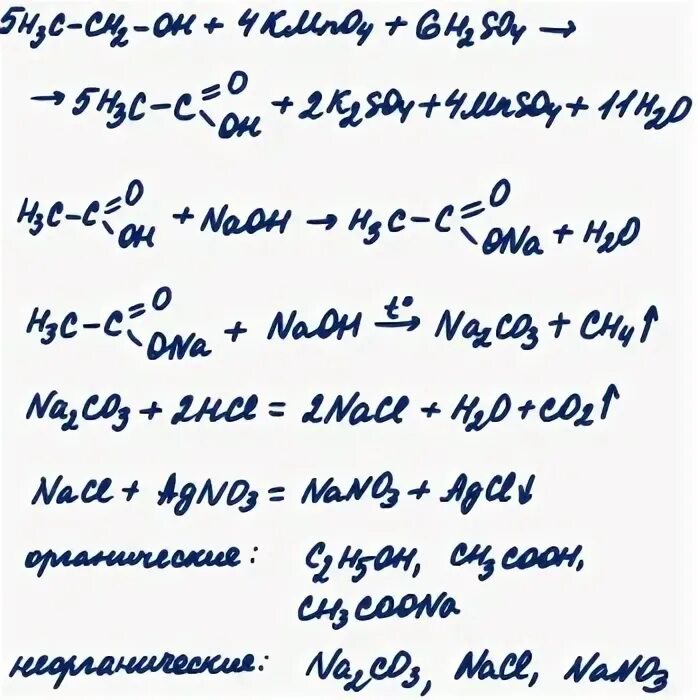 5H₃C-CH₂-OH + 4KMnO₄ + 6H₂SO₄ →
→ 5H₃C-C(=O)(-OH) + 2K₂SO₄ + 4MnSO₄ + 11H₂O
H₃C-C(=O)(-OH) + NaOH → H₃C-C(=O)(-ONa) + H₂O
H₃C-C(=O)(-ONa) + NaOH –t°→ Na₂CO₃ + CH₄↑
Na₂CO₃ + 2HCl = 2NaCl + H₂O + CO₂↑
NaCl + AgNO₃ = NaNO₃ + AgCl↓
органические: C₂H₅OH, CH₃COOH,
CH₃COONa
неорганические: Na₂CO₃, NaCl, NaNO₃